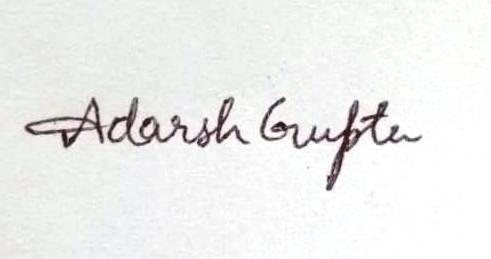 Adarsh Gupta